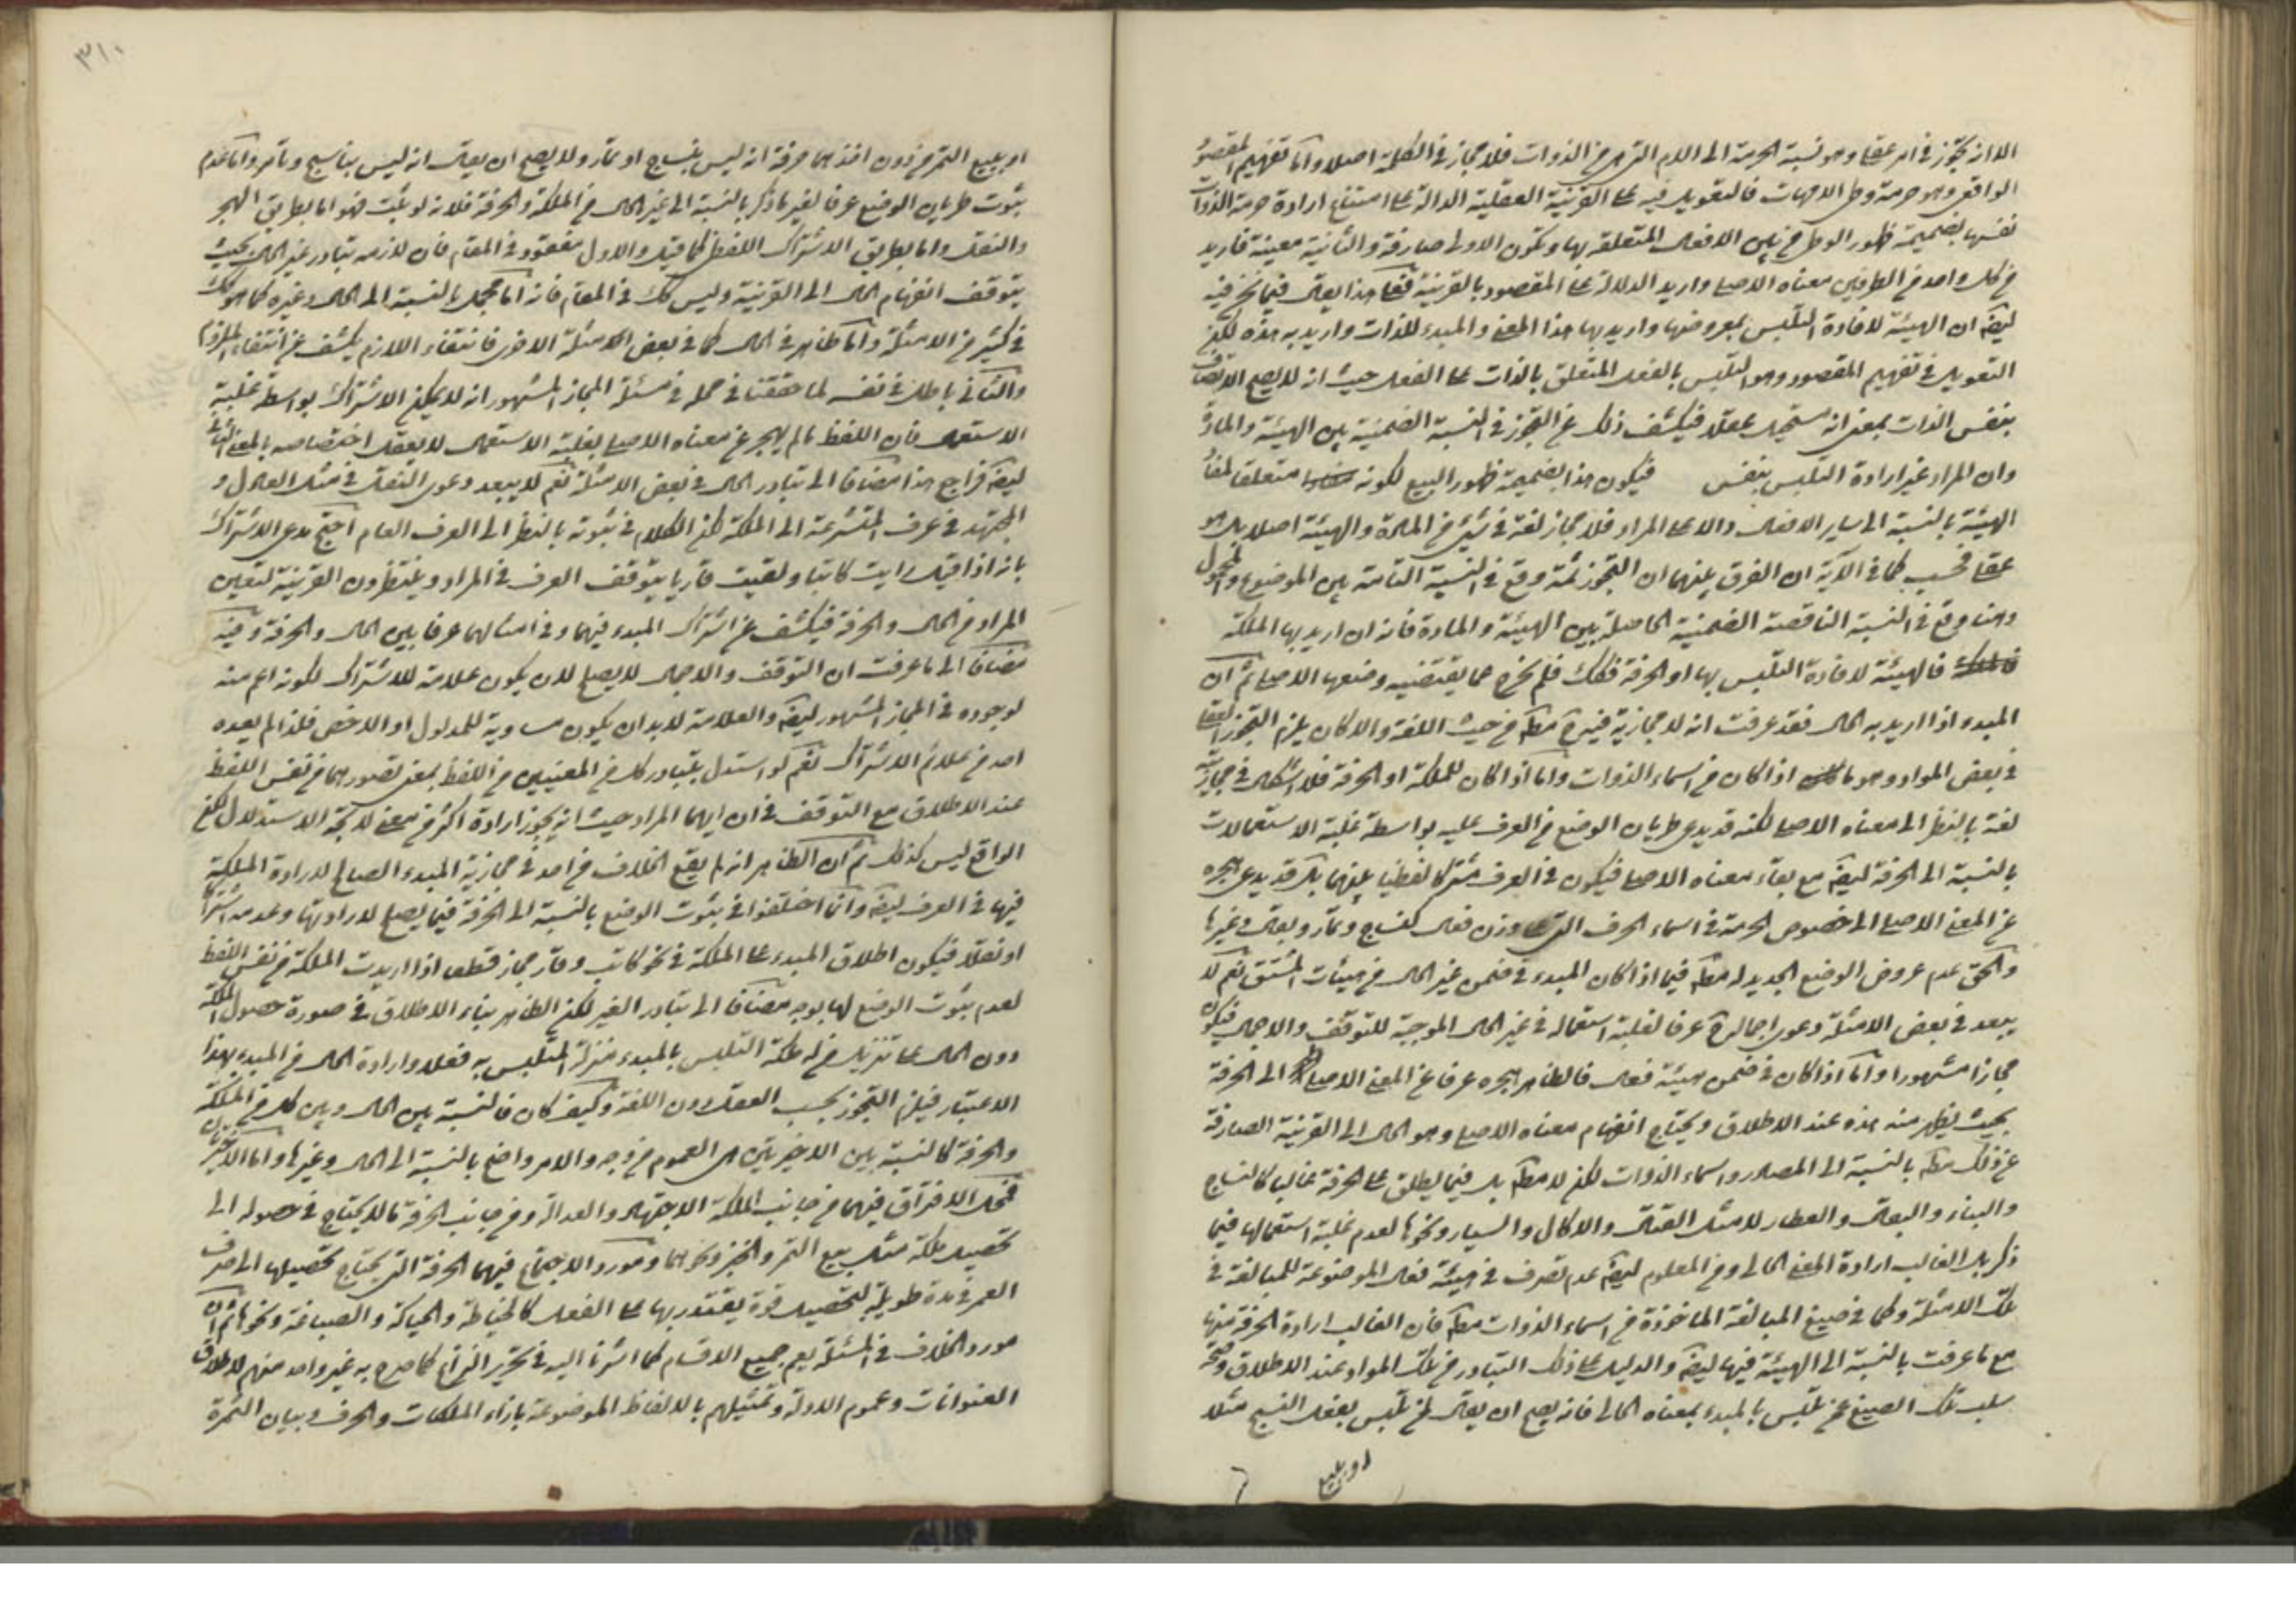 الا انه تجوّز في امر عقلي وهو نسبة الحرمة الى الام التي هي من الذوات فلا مجاز في الكلمة اصلا واما تفهيم المقصود
الواقعي وهو حرمة وطى الامهات فالتعويل فيه على القرينة العقلية الدالة على امتناع ارادة حرمة الذوات
نفسها بضميمة ظهور الوطى من بين الافعال المتعلقة بها وتكون الاولى صارفة والثانية معينة فاريد
من كل واحد من الطرفين معناه الاصلي واريد الدلالة على المقصود بالقرينة فعلى هذا يقال فيما نحن فيه
ايضا ان الهيئة لافادة التلبس بمعروضها واريد بها هذا المعنى والمبدء للذات واريد به هذه لكن
التعويل في تفهيم المقصود وهو التلبس بالفعل المتعلق بالذات على الفعل حيث انه لا يصح الاتصاف
بنفس الذات بمعنى انه مستحيل عقلا فيكشف ذلك عن التجوز في النسبة الضمنية بين الهيئة والمادة
وان المراد غير ارادة التلبس بنفس فيكون هذا بضميمة ظهور البيع لكونه متعلقا لهذه
الهيئة بالنسبة الى ساير الافعال دالا على المراد فلا مجاز لغة في شيء من المادة والهيئة اصلا بل هو
عقلي فحسب كما في الآية ان الفرق بينهما ان التجوز ثمة وقع في النسبة التامة بين الموضوع والمحمول
وهنا وقع في النسبة الناقصة الضمنية الحاصلة بين الهيئة والمادة فانه ان اريد بها الملكة
فالهيئة لافادة التلبس بها او الحرفة فكك فلم يخرج عما يقتضيه وضعها الاصلي ثم ان
المبدء اذا اريد به الحال فقد عرفت انه لا مجازية فيه مط من حيث اللغة والا كان يلزم التجوز العقلي
في بعض المواد وهو ما اذا كان من اسماء الذوات واما اذا كان للملكة او الحرفة فلا اشكال في مجازيته
لغة بالنظر الى معناه الاصلي لكنه قد يدعى طريان الوضع من العرف عليه بواسطة غلبة الاستعمالات
بالنسبة الى الحرفة ايضا مع بقاء معناه الاصلي فيكون في العرف مشتركا لفظيا بينهما بل قد يدعى هجره
عن المعنى الاصلي الى خصوص الحرفة في اسماء الحرف التي على وزن فعال كنساج وتمار وبقال وغيرها
والحق عدم عروض الوضع الجديد له مط فيما اذا كان المبدء في ضمن غير الحال من هيئات المشتق نعم لا
يبعد في بعض الامثلة دعوى اجماله عرفا لغلبة استعماله في غير الحال الموجبة للتوقف والاجمال فيكون
مجازا مشهورا واما اذا كان في ضمن هيئة فعال فالظاهر هجره عرفا عن المعنى الاصلي الى الحرفة
بحيث يظهر منه هذه عند الاطلاق ويحتاج انفهام معناه الاصلي وهو الحال الى القرينة الصارفة
عن ذلك مط بالنسبة الى المصادر واسماء الذوات لكن لا مط بل فيما يطلق على الحرفة غالبا كالنساج
والبناء والبقال والعطار لا مثل القتال والاكال والسيار ونحوها لعدم غلبة استعمالها فيما
ذكر بل الغالب ارادة المعنى الحالي ومن المعلوم ايضا عدم تصرف في هيئة فعال الموضوعة للمبالغة في
تلك الامثلة وكما في صيغ المبالغة الماخوذة من اسماء الذوات مط فان الغالب ارادة الحرفة منها
مع ما عرفت بالنسبة الى الهيئة فيها ايضا والدليل على ذلك التبادر من تلك المواد عند الاطلاق وصحة
سلب تلك الصيغ عمن تلبس بالمبدء بمعناه الحالي فانه يصح ان يقال لمن تلبس بفعل النسج مثلا
او ببيع
٣١٠
او ببيع التمر من دون اخذهما حرفة انه ليس بنساج او تمار ولا يصح ان يقال انه ليس بناسج وتامر واما عدم
ثبوت طريان الوضع عرفا لغير ما ذكر بالنسبة الى غير الحال من الملكة والحرفة فلانه لو ثبت فهو اما بطريق الهجر
والنقل واما بطريق الاشتراك اللفظي كما قيل والاول مفقود في المقام فان لازمه تبادر غير الحال بحيث
يتوقف انفهام الحال الى القرينة وليس كك في المقام فانه اما مجمل بالنسبة الى الحال وغيره كما هو كك
في كثير من الامثلة واما ظاهر في الحال كما في بعض الامثلة الاخرى فانتفاء اللازم يكشف عن انتفاء الملزوم
والثاني باطل في نفسه لما حققنا في محله في مسئلة المجاز المشهور انه لا يمكن الاشتراك بواسطة غلبة
الاستعمال فان اللفظ ما لم يهجر عن معناه الاصلي بغلبة الاستعمال لا يعقل اختصاصه بالمعنى الثاني
ايضا فراجع هذا مضافا الى تبادر الحال في بعض الامثلة نعم لا يبعد دعوى النقل في مثل العادل و
المجتهد في عرف المتشرعة الى الملكة لكن الكلام في ثبوته بالنظر الى العرف العام احتج مدعى الاشتراك
بانه اذا قيل رايت كاتبا ولقيت قاريا يتوقف العرف في المراد وينتظرون القرينة لتعيين
المراد من الحال والحرفة فيكشف عن اشتراك المبدء فيهما وفي امثالهما عرفا بين الحال والحرفة وفيه
مضافا الى ما عرفت ان التوقف والاجمال لا يصلح لان يكون علامة للاشتراك لكونه اعم منه
لوجوده في المجاز المشهور ايضا والعلامة لا بد ان يكون مساوية للمدلول او الاخص فلذا لم يعده
احد من علائم الاشتراك نعم لو استدل بتبادر كل من المعنيين من اللفظ بمعنى تصورهما من نفس اللفظ
عند الاطلاق مع التوقف في ان ايهما المراد حيث انه يجوز ارادة اكثر من معنى لا تجه الاستدلال لكن
الواقع ليس كذلك ثم ان الظاهر انه لم يقع الخلاف من احد في مجازية المبدء الصالح لارادة الملكة
فيها في العرف ايضا وانما اختلفوا في ثبوت الوضع بالنسبة الى الحرفة فيما يصلح لارادتها وعدمه اشتراكا
او نقلا فيكون اطلاق المبدء على الملكة في نحو كاتب وقار مجاز قطعا اذا اريدت الملكة من نفس اللفظ
لعدم ثبوت الوضع لها بوجه مضافا الى تبادر الغير لكن الظاهر بناء الاطلاق في صورة حصول الملكة
دون الحال على تنزيل من له ملكة التلبس بالمبدء منزلة المتلبس به فعلا وارادة الحال من المبدء بهذا
الاعتبار فيلزم التجوز بحسب العقل دون اللغة وكيف كان فالنسبة بين الحال وبين كل من الملكة
والحرفة كالنسبة بين الاخيرتين هي العموم من وجه والامر واضح بالنسبة الى الحال وغيرها واما الاخيرتان
فمحل الافتراق فيهما من جانب الملكة الاجتهاد والعدالة ومن جانب الحرفة ما لا يحتاج في حصوله الى
تحصيل ملكة مثل بيع التمر والخبز ونحوهما ومورد الاجتماع فيهما الحرفة التي يحتاج تحصيلها الى صرف
العمر في مدة طويلة لتحصيل قوة يقتدر بها على الفعل كالخياطة والحياكة والصياغة ونحوها ثم ان
مورد الخلاف في المسئلة يعم جميع الاقسام كما اشرنا اليه في تحرير النزاع كما صرح به غير واحد منهم لاطلاق
العنوانات وعموم الادلة وتمثيلهم بالالفاظ الموضوعة بازاء الملكات والحرف وبيان الثمرة